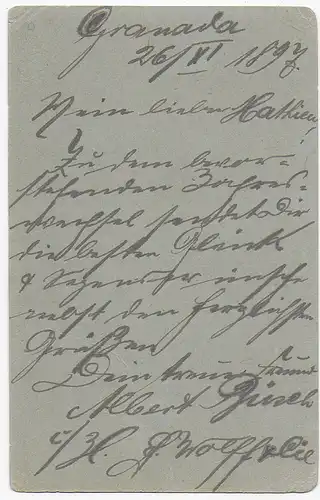 Granada
26/XI 1897.
Mein lieber Mathieu!
Zu dem bevor-
stehenden Jahres-
wechsel sendet Dir
die besten Glück
& Segenswünsche
nebst den herzlichsten
Grüßen
Dein treuer Freund
Albert Büsch
c/H. Wolff